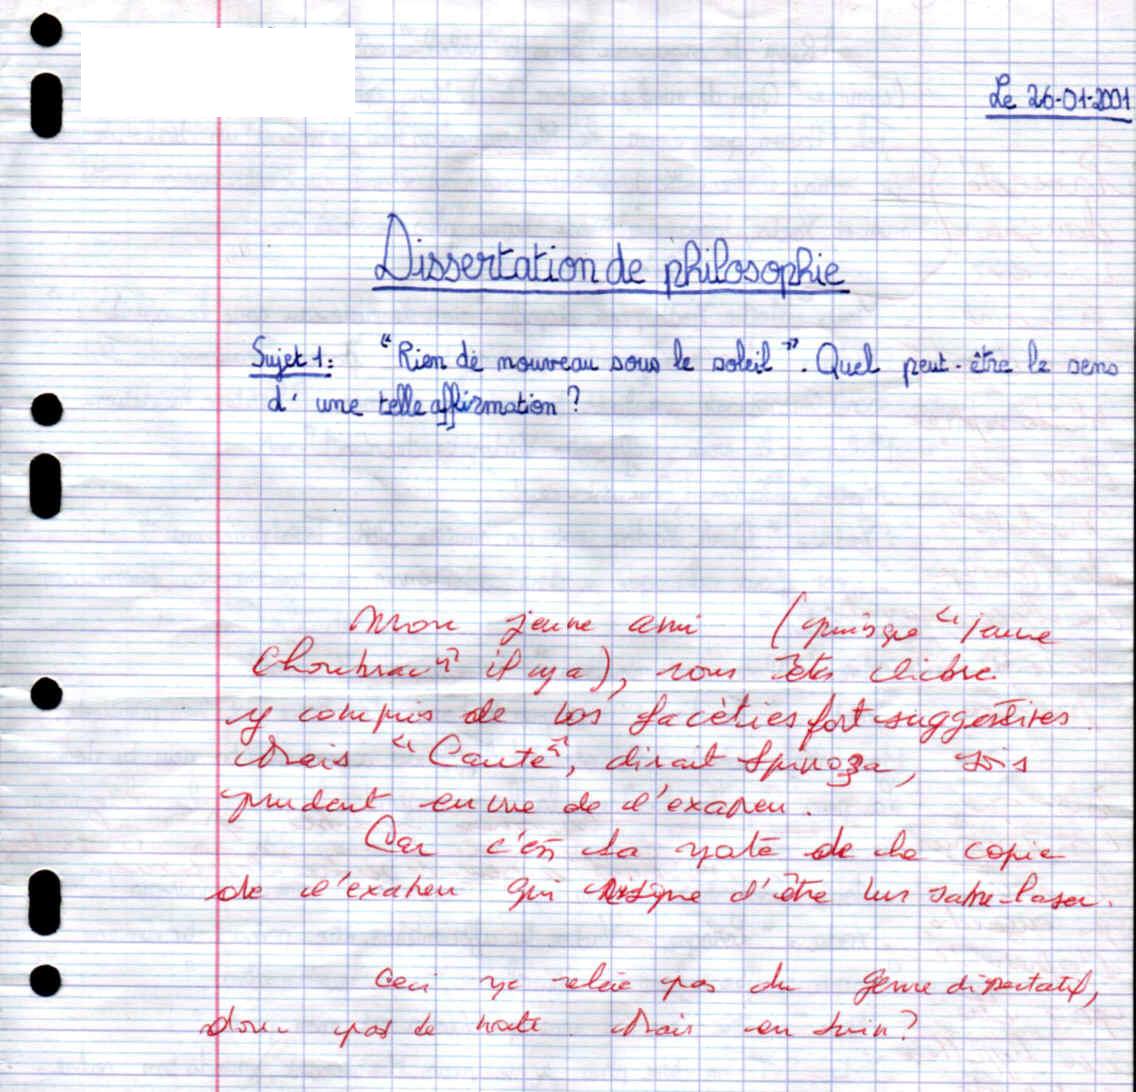 Le 26-01-2001
Dissertation de philosophie
Sujet 1: "Rien de nouveau sous le soleil". Quel peut-être le sens
d'une telle affirmation ?
Mon jeune ami (puisque "jeune
il y a), vous êtes libre
y compris de vos facéties fort suggestives.
Mais "Caute", dirait Spinoza, sois
prudent en vue de l'examen.
Car c'est la note de la copie
de l'examen qui risque d'être un sabre-laser.
Ceci ne relève pas du genre dissertatif,
donc pas de note. Mais en juin?